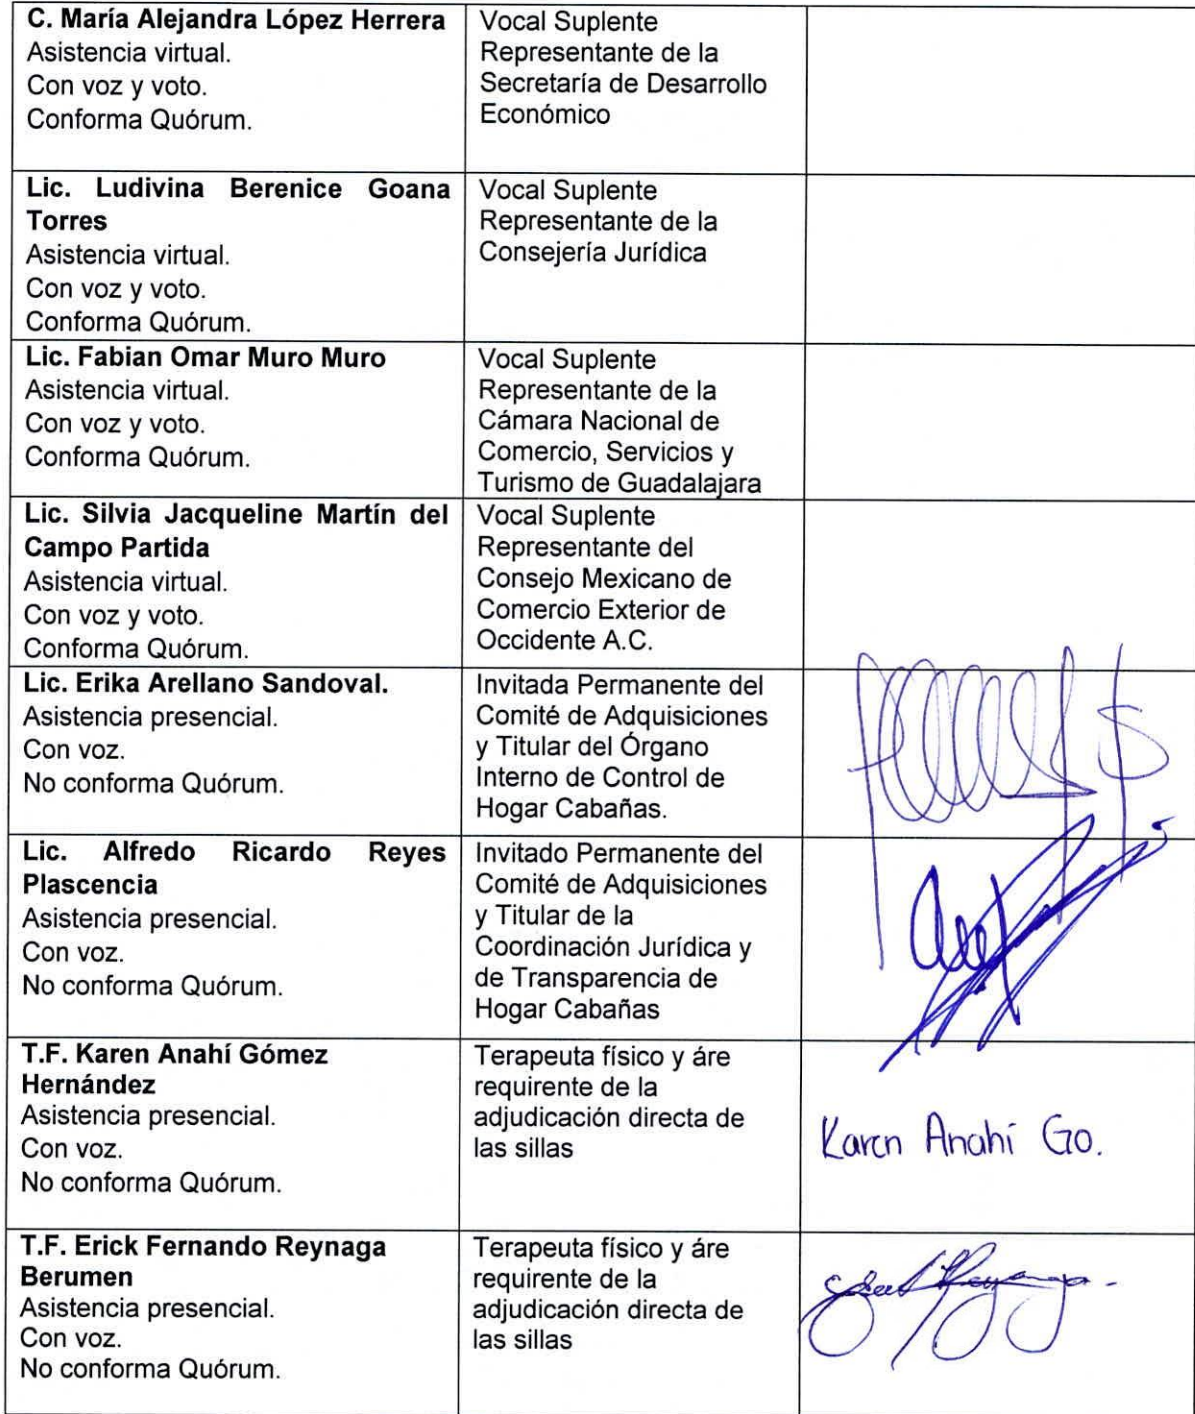 C. María Alejandra López Herrera
Asistencia virtual.
Con voz y voto.
Conforma Quórum.
Vocal Suplente
Representante de la
Secretaría de Desarrollo
Económico
Lic. Ludivina Berenice Goana
Torres
Asistencia virtual.
Con voz y voto.
Conforma Quórum.
Vocal Suplente
Representante de la
Consejería Jurídica
Lic. Fabian Omar Muro Muro
Asistencia virtual.
Con voz y voto.
Conforma Quórum.
Vocal Suplente
Representante de la
Cámara Nacional de
Comercio, Servicios y
Turismo de Guadalajara
Lic. Silvia Jacqueline Martín del
Campo Partida
Asistencia virtual.
Con voz y voto.
Conforma Quórum.
Vocal Suplente
Representante del
Consejo Mexicano de
Comercio Exterior de
Occidente A.C.
Lic. Erika Arellano Sandoval.
Asistencia presencial.
Con voz.
No conforma Quórum.
Invitada Permanente del
Comité de Adquisiciones
y Titular del Órgano
Interno de Control de
Hogar Cabañas.
Lic. Alfredo Ricardo Reyes
Plascencia
Asistencia presencial.
Con voz.
No conforma Quórum.
Invitado Permanente del
Comité de Adquisiciones
y Titular de la
Coordinación Jurídica y
de Transparencia de
Hogar Cabañas
T.F. Karen Anahí Gómez
Hernández
Asistencia presencial.
Con voz.
No conforma Quórum.
Terapeuta físico y áre
requirente de la
adjudicación directa de
las sillas
Karen Anahí Go.
T.F. Erick Fernando Reynaga
Berumen
Asistencia presencial.
Con voz.
No conforma Quórum.
Terapeuta físico y áre
requirente de la
adjudicación directa de
las sillas